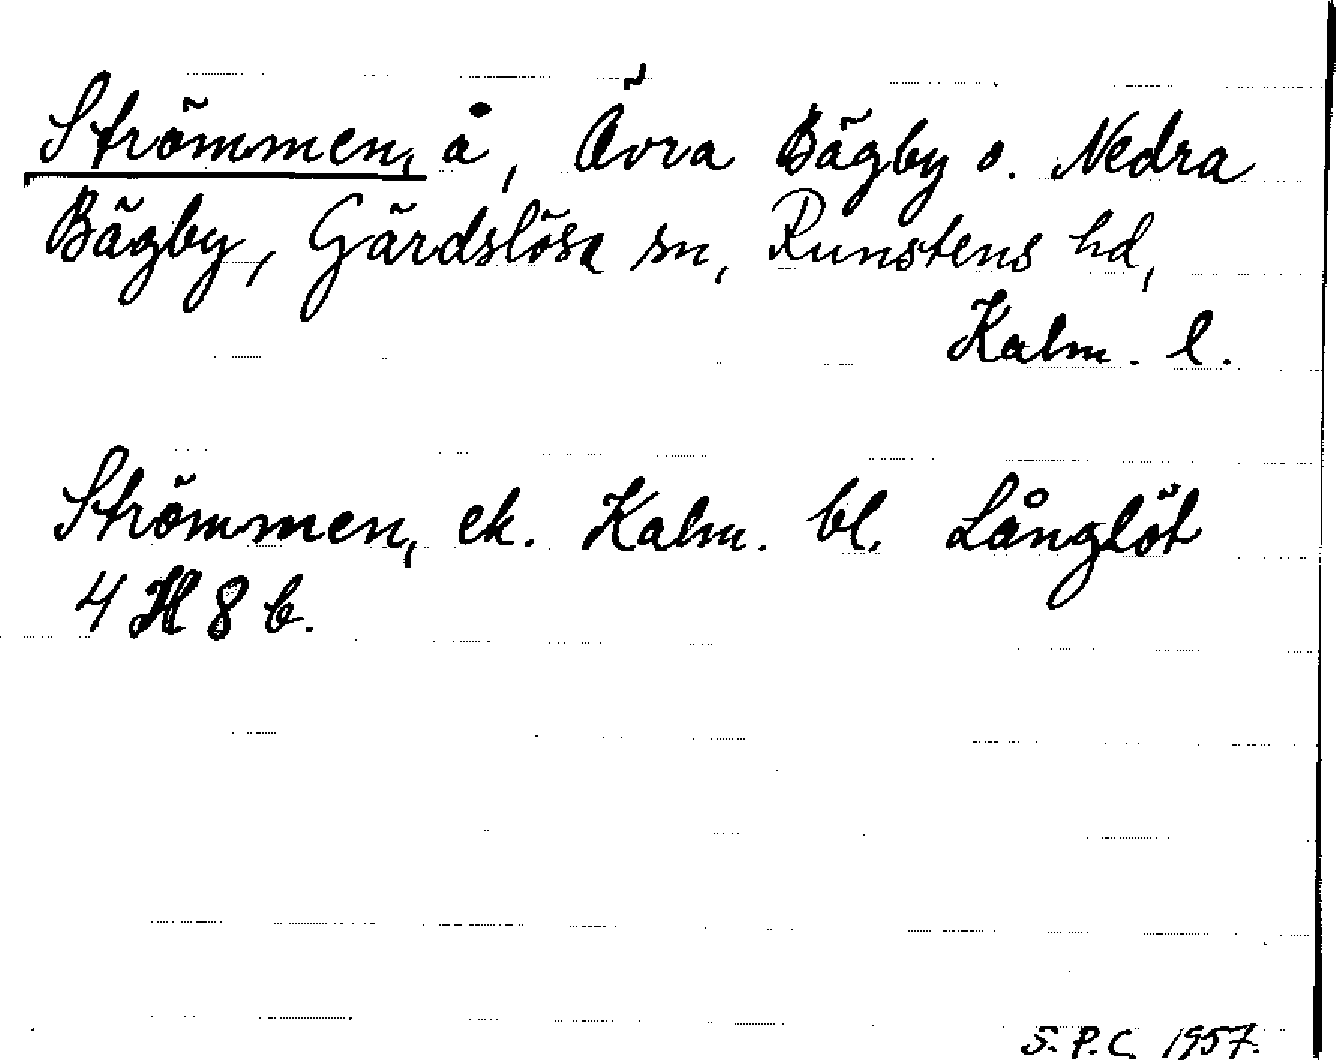 Strömmen, å, Övra Bägby o. Nedra
Bägby, Gärdslösa sn, Runstens hd,
Kalm. l.
Strömmen, ek. Kalm. bl. Långlöt
4 H 8 b.
S. P. C 1957.